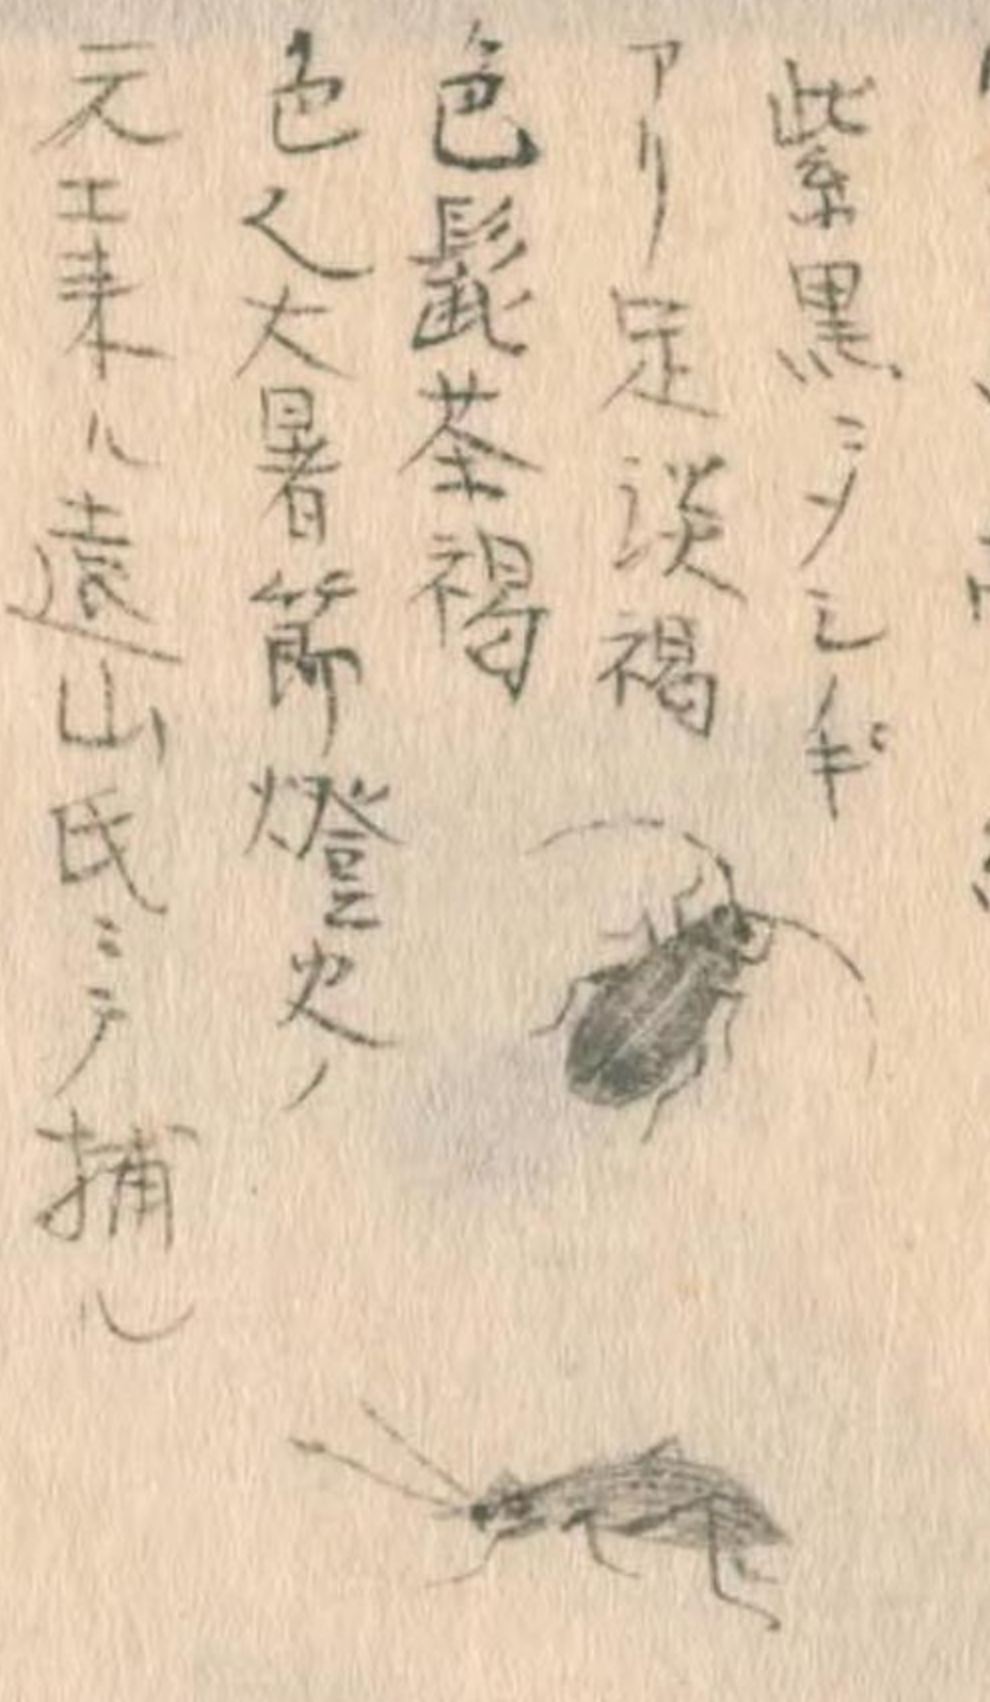 紫黒ニ
アリ足淡褐
色髭茶褐
色 大暑節燈火ノ
元エ来ル遠山氏ニテ捕ル